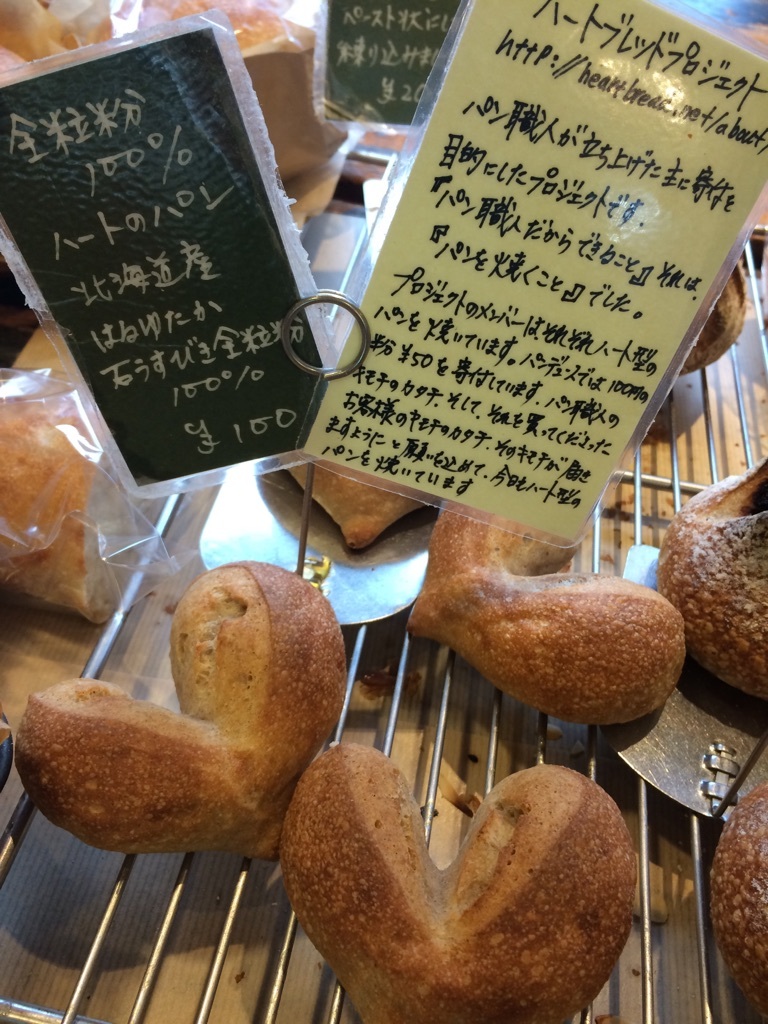 全粒粉
100%
ハートのパン
北海道産
はるゆたか
石うすびき全粒粉
100%
¥100
ペースト状にし
練り込みま
¥20
ハートブレッドプロジェクト
http://heartbread.net/about/
パン職人が立ち上げた主に寄付を
目的にしたプロジェクトです。
『パン職人だからできること』それは、
『パンを焼くこと』でした。
プロジェクトのメンバーはそれぞれハート型の
パンを焼いています。パンデュースでは100円の
分¥50を寄付しています。パン職人の
キモチのカタチ、そして、それを買ってくださった
お客様のキモチのカタチ、そのキモチが届き
ますように と願いを込めて、今日もハート型の
パンを焼いています